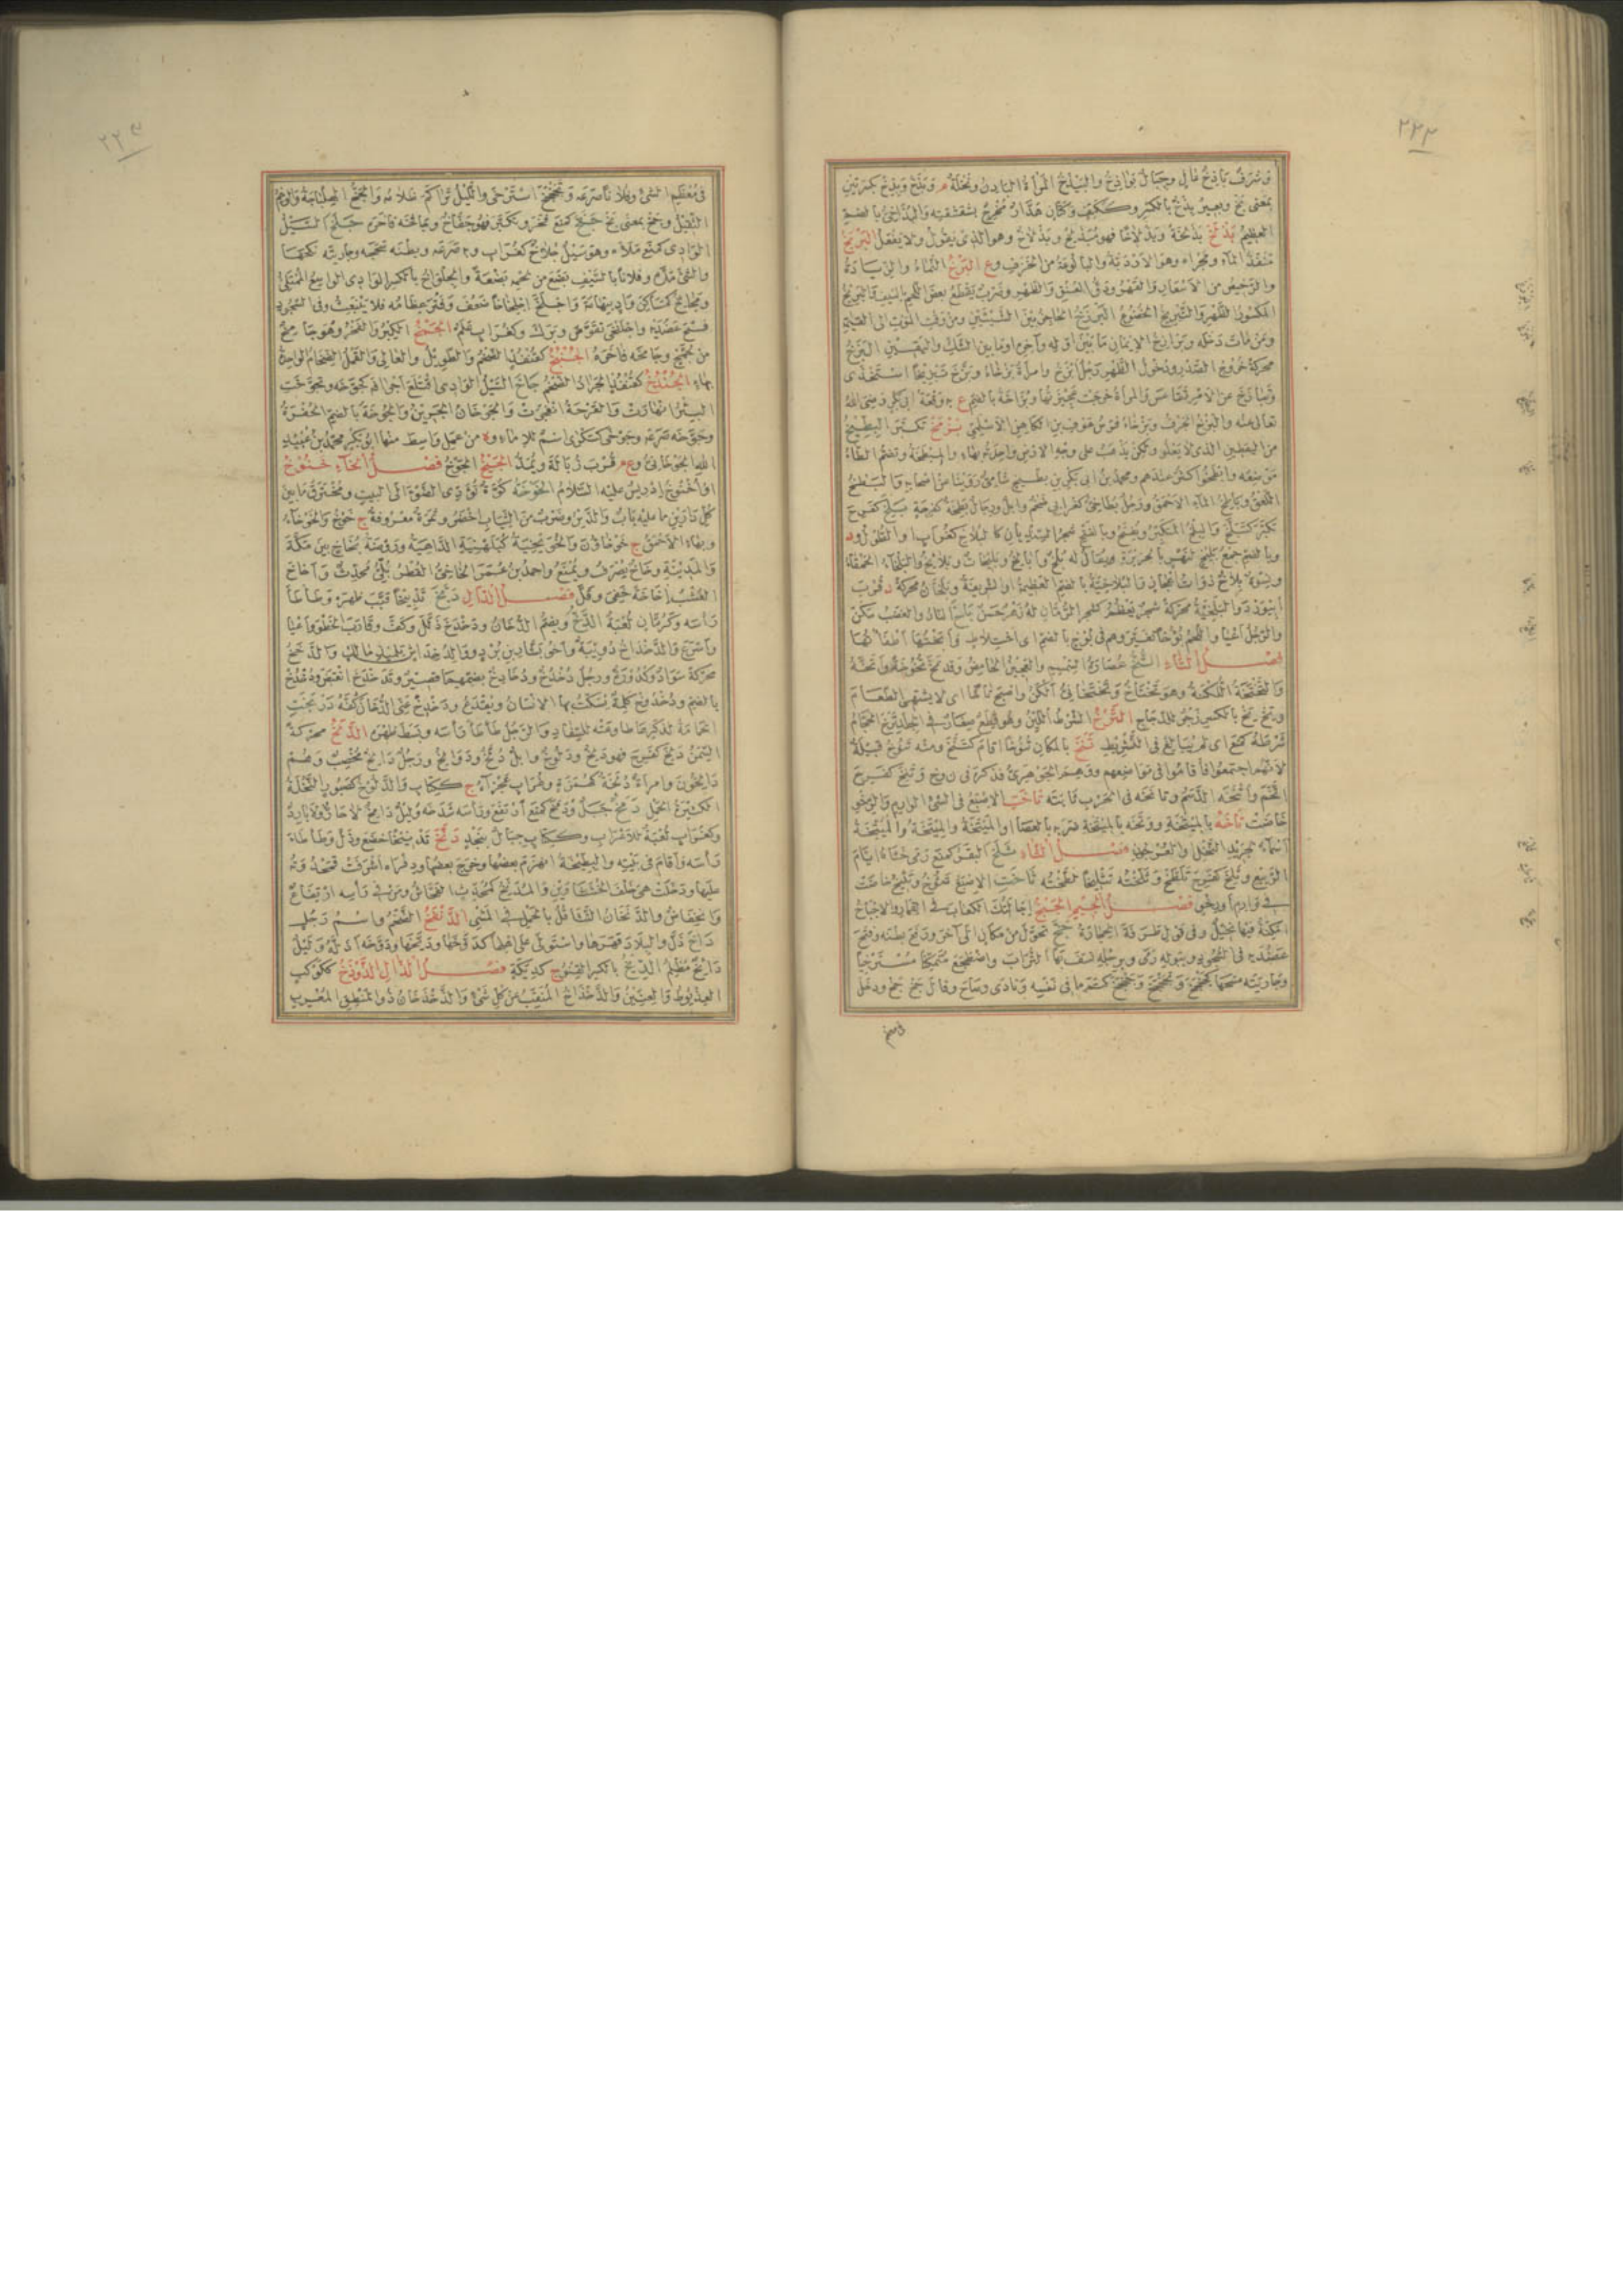 ٢٢٢
وشرف باذخ عال وجبال بواذخ والبيذخ المرأة البادن ونخلة م وبذخ وبذخ بكسرتين
بمعنى بخ وبعير بذخ بالكسر وككتف وكتان هدار مخرج بشقشقته والبذاخي بالضم
العظيم بذلخ بذلخة وبذلاخا فهو مبذلخ وبذلاخ وهو الذي يقول ولا يفعل البربخ
منفذ الماء ومجراه وهو الاردبة والبالوعة من الخزف وع البرخ النماء والزيادة
والرخيص من الاسعار والقهر ودق العنق والظهر وضرب يقطع بعض اللحم بالسيف والبريخ
المكسور الظهر والتبريخ الخضوع البرزخ الحاجز بين الشيئين ومن وقت الموت الى القيمة
ومن مات دخله وبرازخ الايمان ما بين اوله واخره او ما بين الشك واليقين البزخ
محركة خروج الصدر ودخول الظهر رجل ابزخ وامرأة بزخاء وبزخ تبزيخا استخذى
وتبازخ عن الامر تقاعس والمرأة خرجت عجيزتها وبزاخة بالضم ع به وقعة ابي بكر رضي الله
تعالى عنه والبزخ الجرف وبزخاء فرس عوف بن الكاهن الاسلمي بزمخ تكبر البطيخ
من اليقطين الذي لا يعلو ولكن يذهب على وجه الارض واحدته بهاء والمبطخة وتضم الطاء
موضعه وابطخوا كثر عندهم ومحمد بن ابي بكر بن بطيخ شامي روينا عن اصحابه والبطخ
اللعق وباطخ الماء الاحمق ورجل بطاخي كغرابي ضخم وابل ورجال بطخة كفرحة بلخ كفرح
تكبر كتبلخ والبلخ المتكبر ويفتح وبالفتح شجر السنديان كالبلاخ كغراب او الطول ود
وبالضم جمع بليخ لنهر بالجزيرة ويقال له بلخ وابالخ وبليخات وبلائخ والبلخاء الحمقاء
ونسوة بلاخ ذوات اعجاز والبلاخية بالضم العظيمة او الشريفة وبلخان محركة د قرب
ابيورد والبلخية محركة شجر يعظم كشجر الرمان له زهر حسن باخ النار والغضب سكن
والرجل اعيا واللحم بؤوخا تغير وهم في بوخ بالضم اي اختلاط وابختها اطفأتها
فصل التاء التخ عصارة السمسم والعجين الحامض وقد تخ تخوخة واتخه
والتختخة اللكنة وهو تختاخ وتختخاني الكن واصبح تاخا اي لا يشتهي الطعام
وتخ تخ بالكسر زجر للدجاج الترخ الشرط اللين وهو قطع صغار في الجلد ترخ الحجام
شرطه كمنع اي لم يبالغ في التشريط تنخ بالمكان تنوخا اقام كتنخ ومنه تنوخ قبيلة
لانهم اجتمعوا فأقاموا في مواضعهم ووهم الجوهري فذكره في ن و خ وتنخ كفرح
اتخم واتنخه الدسم وتانخه في الحرب ثابته تاخت الاصبع في الشيء الوارم والرخو
خاضت تاخه بالميتخة ووتخه بالميتخة ضربه بالعصا او المتيخة والميتخة والمتيخة
اسماء لجريد النخل والعرجون فصل الثاء ثلخ البقر كمنع رمى خثاءه ايام
الربيع وثلخ كفرح تلطخ وثلخته تثليخا لطخته ثاخت الاصبع تثوخ وتثيخ خاضت
في وارم او رخو فصل الجيم الجبخ اجالتك الكعاب في القمار والاجباخ
امكنة فيها نخيل وفي قول طرفة الحجارة جخ تحول من مكان الى آخر ورفع بطنه وفتح
عضديه في السجود وببوله رمى وبرجله نسف بها التراب واضطجع متمكنا مسترخيا
وجاريته مسحها كجخجخ وتجخجخ وجخجخ كتم ما في نفسه ونادى وصاح وقال جخ جخ ودخل
في معظم
٢٢٣
في معظم الشيء وفلانا صرعه وتجخجخ استرخى والليل تراكم ظلامه والجخ الهلباجة والوخم
الثقيل وجخ بمعنى بخ جفخ كمنع فخر وتكبر فهو جفاخ وجافخه فاخره جلخ السيل
الوادي كمنع ملأه وهو سيل جلاخ كغراب وبه صرعه وبطنه سحجه وجاريته نكحها
والشيء مده وفلانا بالسيف بضع من لحمه بضعة والجلواخ بالكسر الوادي الواسع الممتلئ
ومجالخ كمساكن واد بتهامة واجلخ اجلخاخا ضعف وفتر عظامه فلا ينبعث وفي السجود
فتح عضديه واجلخى تقوض وبرك وكغراب علم الجمخ الكبر والفخر وهو جامخ
من جمخ وجامخه فاخره الجنبخ كقنفذ الضخم والطويل والعالي والقمل الضخام الواحدة
بهاء الجندخ كقنفذ الجراد الضخم جاخ السيل الوادي اقتلع اجرافه كجوخه وتجوخت
البئر انهارت والقرحة انفجرت والجوخان الجرين والجوخة بالضم الحفرة
وجوخه صرعه وجوخى كسكرى اسم للاماء وة من عمل واسط منها ابو بكر محمد بن عبيد
الله الجوخاني وع قرب زبالة ويمد الجيخ الجوخ فصل الخاء خنوخ
او اخنوخ ادريس عليه السلام الخوخة كوة تؤدي الضوء الى البيت ومخترق ما بين
كل دارين ما عليه باب والدبر وضرب من الثياب اخضر وثمرة معروفة ج خوخ والخوخاءة
وبهاء الاحمق ج خوخاؤن والخويخية كبلهنية الداهية وروضة خاخ بين مكة
والمدينة وخاخ يصرف ويمنع واحمد بن عمر الخاخي القطربلي محدث واخاخ
العشب اخاخة خفي وقل فصل الدال دبخ تدبيخا قبب ظهره وطأطأ
رأسه وكرمان لعبة الدخ ويضم الدخان ودخدخ ذلل وكف وقارب الخطو واعيا
واسرع والدخداخ دويبة وأخو بشار بن برد والدخخ
محركة سواد وكدورة ورجل دخدخ ودخادخ بضمهما قصير وتدخدخ انقبض ودخدخ
بالضم ودخدوخ كلمة يسكت بها الانسان ويقدع ودخدخ عنى الدخان كفه دربخت
الحمامة لذكرها طاوعته للسفاد والرجل طأطأ رأسه وبسط ظهره الدلخ محركة
السمن دلخ كفرح فهو دلخ ودلوخ وابل دلخ ودوالخ ورجل دالخ مخصب وهم
دالخون وامرأة دلخة كهمزة وغراب عجزاء ج ككتاب والدلوخ كصبور النخلة
الكثيرة الحمل دمخ جبل ودمخ كمنع ارتفع ورأسه شدخه وليل دامخ لا حار ولا بارد
وكغراب لعبة للاعراب وككتاب جبال بنجد دنخ تدنيخا خضع وذل وطأطأ
رأسه واقام في بيته والبطيخة انهزم بعضها وخرج بعضها وذفراه اشرفت قمحدوته
عليها ودخلت هي خلف الخششاوين والمدنخ كمحدث الفحاش ومن في رأسه ارتفاع
وانخفاض والدنخان التثاقل بالحمل في المشي الدنفخ الضخم واسم رجل
داخ ذل والبلاد قهرها واستولى على اهلها كدوخها وديخها ودوخه اذله وليل
دائخ مظلم الديخ بالكسر القنو ج كديكة فصل الذال الذوذخ ككوكب
العذيوط والعنين والذخذاخ المنقب عن كل شيء والذخذخان ذو المنطق المعرب